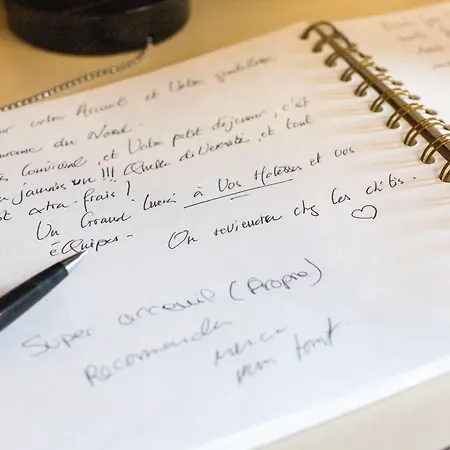 votre Accueil et Votre gentillesse
du Nord.
Convivial, et Votre petit déjeuner, c'est
jamais vu !!! Quelle diversité, et tout
est extra-frais !
Un Grand Merci à Vos Hotesses et vos
éQuipes -
On reviendra chez les ch'tis.
Super acceuil (Propre)
Recommander
Merci
pour tout.